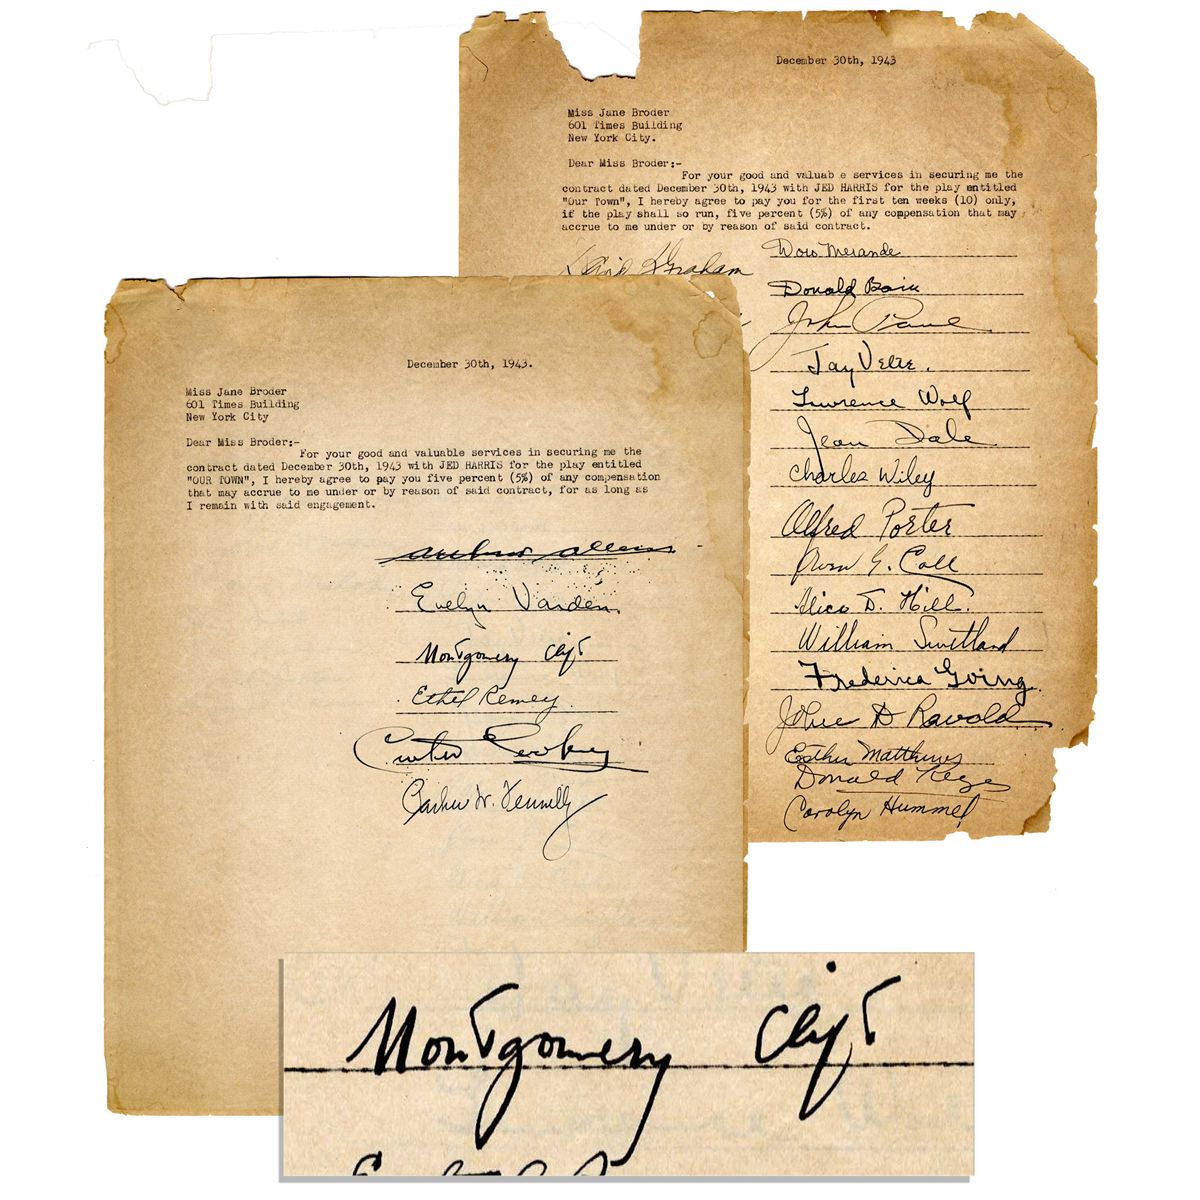 December 30th, 1943
Miss Jane Broder
601 Times Building
New York City.
Dear Miss Broder:-
For your good and valuable services in securing me the
contract dated December 30th, 1943 with JED HARRIS for the play entitled
"Our Town", I hereby agree to pay you for the first ten weeks (10) only,
if the play shall so run, five percent (5%) of any compensation that may
accrue to me under or by reason of said contract.
Graham
Doro Merande
Donald Bain
John
Jay Velie.
Lawrence Wolf
Jean Dale
Charles Wiley
Alfred Porter
G. Call
Alice D. Hill.
William Swetland
Frederica Going
D Ravold
Esther Matthews
Donald Keyes
Carolyn Hummel
December 30th, 1943.
Miss Jane Broder
601 Times Building
New York City
Dear Miss Broder:-
For your good and valuable services in securing me the
contract dated December 30th, 1943 with JED HARRIS for the play entitled
"OUR TOWN", I hereby agree to pay you five percent (5%) of any compensation
that may accrue to me under or by reason of said contract, for as long as
I remain with said engagement.
Evelyn Varden
Montgomery Clift
Ethel Remey
Arthur W.
Montgomery Clift